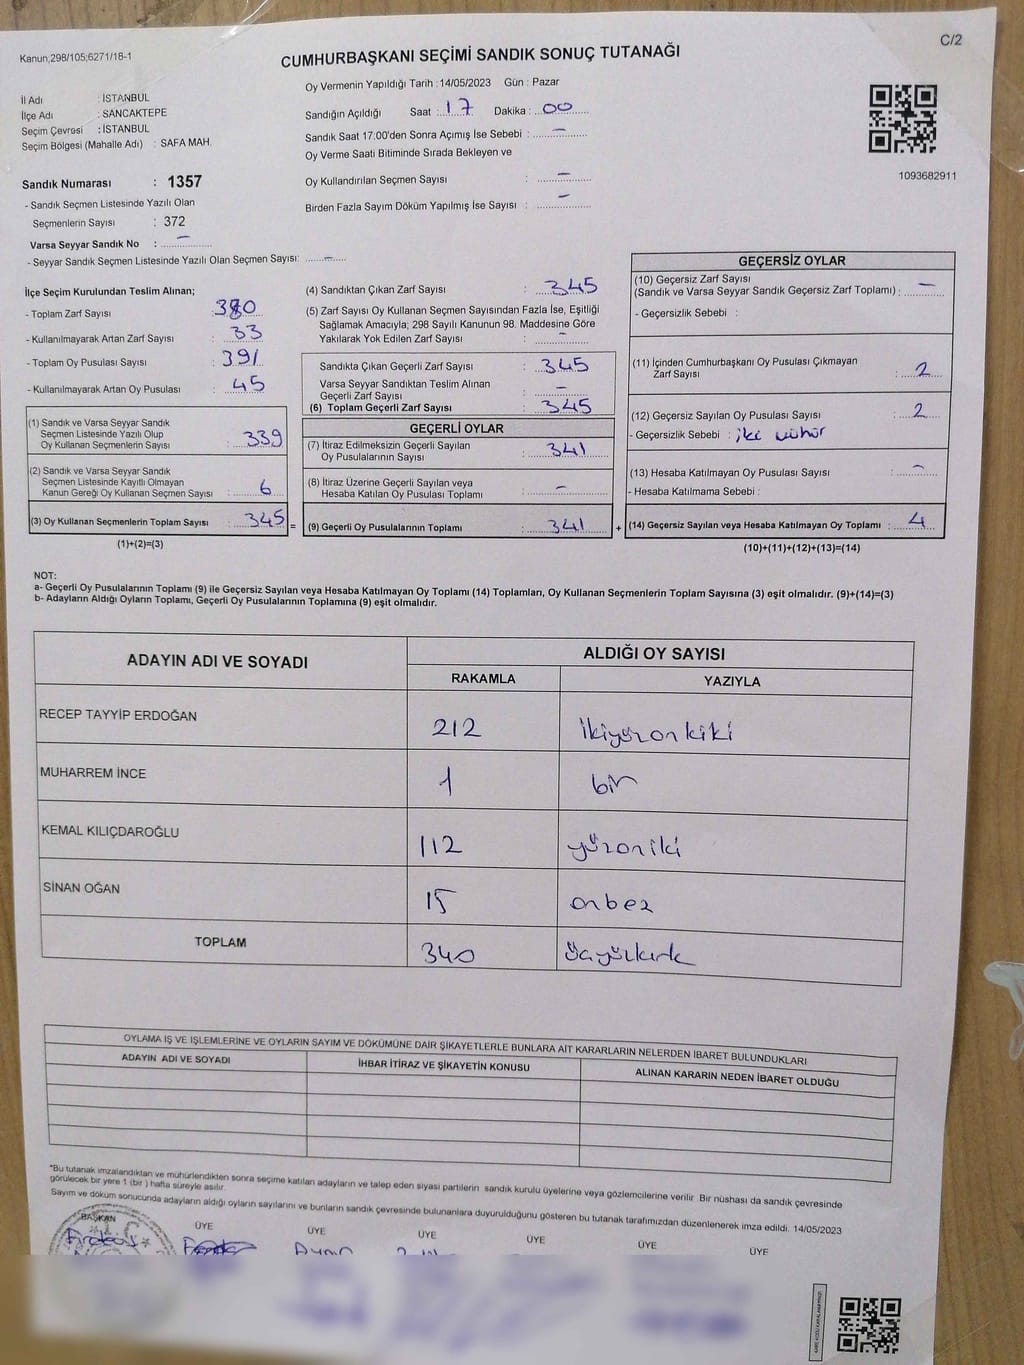 Kanun,298/105;6271/18-1
C/2
CUMHURBAŞKANI SEÇİMİ SANDIK SONUÇ TUTANAĞI
Oy Vermenin Yapıldığı Tarih :14/05/2023 Gün : Pazar
İl Adı : İSTANBUL
İlçe Adı : SANCAKTEPE
Seçim Çevresi : İSTANBUL
Seçim Bölgesi (Mahalle Adı) : SAFA MAH.
Sandığın Açıldığı Saat : 17 Dakika : 00
Sandık Saat 17:00'den Sonra Açımış İse Sebebi : —
Oy Verme Saati Bitiminde Sırada Bekleyen ve
Oy Kullandırılan Seçmen Sayısı : —
Birden Fazla Sayım Döküm Yapılmış İse Sayısı : —
1093682911
Sandık Numarası : 1357
- Sandık Seçmen Listesinde Yazılı Olan
Seçmenlerin Sayısı : 372
Varsa Seyyar Sandık No : —
- Seyyar Sandık Seçmen Listesinde Yazılı Olan Seçmen Sayısı: —
İlçe Seçim Kurulundan Teslim Alınan;
- Toplam Zarf Sayısı : 380
- Kullanılmayarak Artan Zarf Sayısı : 33
- Toplam Oy Pusulası Sayısı : 391
- Kullanılmayarak Artan Oy Pusulası : 45
(1) Sandık ve Varsa Seyyar Sandık
Seçmen Listesinde Yazılı Olup
Oy Kullanan Seçmenlerin Sayısı : 339
(2) Sandık ve Varsa Seyyar Sandık
Seçmen Listesinde Kayıtlı Olmayan
Kanun Gereği Oy Kullanan Seçmen Sayısı : 6
(3) Oy Kullanan Seçmenlerin Toplam Sayısı : 345 =
(1)+(2)=(3)
(4) Sandıktan Çıkan Zarf Sayısı : 345
(5) Zarf Sayısı Oy Kullanan Seçmen Sayısından Fazla İse, Eşitliği
Sağlamak Amacıyla; 298 Sayılı Kanunun 98. Maddesine Göre
Yakılarak Yok Edilen Zarf Sayısı : —
Sandıkta Çıkan Geçerli Zarf Sayısı : 345
Varsa Seyyar Sandıktan Teslim Alınan
Geçerli Zarf Sayısı : —
(6) Toplam Geçerli Zarf Sayısı : 345
GEÇERLİ OYLAR
(7) İtiraz Edilmeksizin Geçerli Sayılan
Oy Pusulalarının Sayısı : 341
(8) İtiraz Üzerine Geçerli Sayılan veya
Hesaba Katılan Oy Pusulası Toplamı : —
(9) Geçerli Oy Pusulalarının Toplamı : 341 +
GEÇERSİZ OYLAR
(10) Geçersiz Zarf Sayısı
(Sandık ve Varsa Seyyar Sandık Geçersiz Zarf Toplamı) : —
- Geçersizlik Sebebi :
(11) İçinden Cumhurbaşkanı Oy Pusulası Çıkmayan
Zarf Sayısı : 2
(12) Geçersiz Sayılan Oy Pusulası Sayısı : 2
- Geçersizlik Sebebi : iki mühür
(13) Hesaba Katılmayan Oy Pusulası Sayısı : —
- Hesaba Katılmama Sebebi :
(14) Geçersiz Sayılan veya Hesaba Katılmayan Oy Toplamı : 4
(10)+(11)+(12)+(13)=(14)
NOT:
a- Geçerli Oy Pusulalarının Toplamı (9) ile Geçersiz Sayılan veya Hesaba Katılmayan Oy Toplamı (14) Toplamları, Oy Kullanan Seçmenlerin Toplam Sayısına (3) eşit olmalıdır. (9)+(14)=(3)
b- Adayların Aldığı Oyların Toplamı, Geçerli Oy Pusulalarının Toplamına (9) eşit olmalıdır.
ADAYIN ADI VE SOYADI ALDIĞI OY SAYISI
RAKAMLA YAZIYLA
RECEP TAYYİP ERDOĞAN 212 ikiyüzonkiki
MUHARREM İNCE 1 bir
KEMAL KILIÇDAROĞLU 112 yüzoniki
SİNAN OĞAN 15 onbez
TOPLAM 340 üçyüzkırk
OYLAMA İŞ VE İŞLEMLERİNE VE OYLARIN SAYIM VE DÖKÜMÜNE DAİR ŞİKAYETLERLE BUNLARA AİT KARARLARIN NELERDEN İBARET BULUNDUKLARI
ADAYIN ADI VE SOYADI İHBAR İTİRAZ VE ŞİKAYETİN KONUSU ALINAN KARARIN NEDEN İBARET OLDUĞU
*Bu tutanak imzalandıktan ve mühürlendikten sonra seçime katılan adayların ve talep eden siyasi partilerin sandık kurulu üyelerine veya gözlemcilerine verilir. Bir nüshası da sandık çevresinde
görülecek bir yere 1 (bir ) hafta süreyle asılır.
Sayım ve döküm sonucunda adayların aldığı oyların sayılarını ve bunların sandık çevresinde bulunanlara duyurulduğunu gösteren bu tutanak tarafımızdan düzenlenerek imza edildi. 14/05/2023
BAŞKAN ÜYE ÜYE ÜYE ÜYE ÜYE ÜYE
T.C.